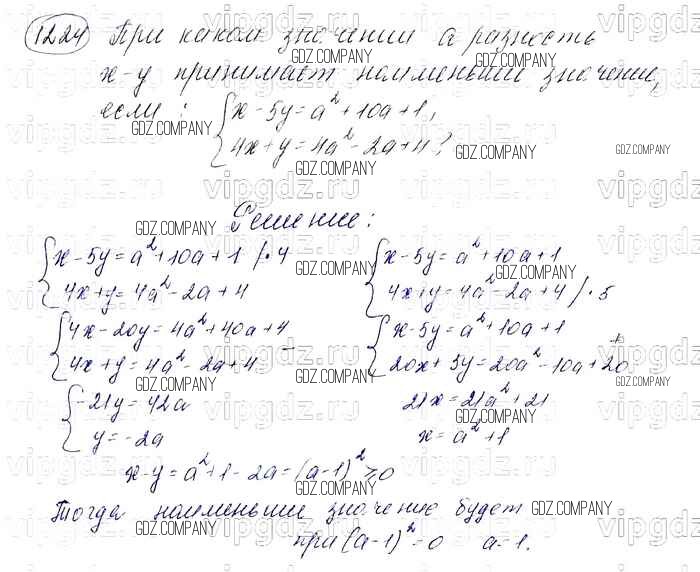 1224 При каком значении a разность
x-y принимает наименьшее значение,
если: { x-5y=a²+10a+1,
4x+y=4a²-2a+4?
Решение:
{ x-5y=a²+10a+1 /·4
4x+y=4a²-2a+4
{ 4x-20y=4a²+40a+4
4x+y=4a²-2a+4 -
{ -21y=42a
y=-2a
{ x-5y=a²+10a+1
4x+y=4a²-2a+4 /·5
{ x-5y=a²+10a+1 +
20x+5y=20a²-10a+20
21x=21a²+21
x=a²+1
x-y=a²+1-2a=(a-1)²≥0
Тогда наименьшим значение будет
при (a-1)²=0 a=1.
GDZ.COMPANY
vipgdz.ru